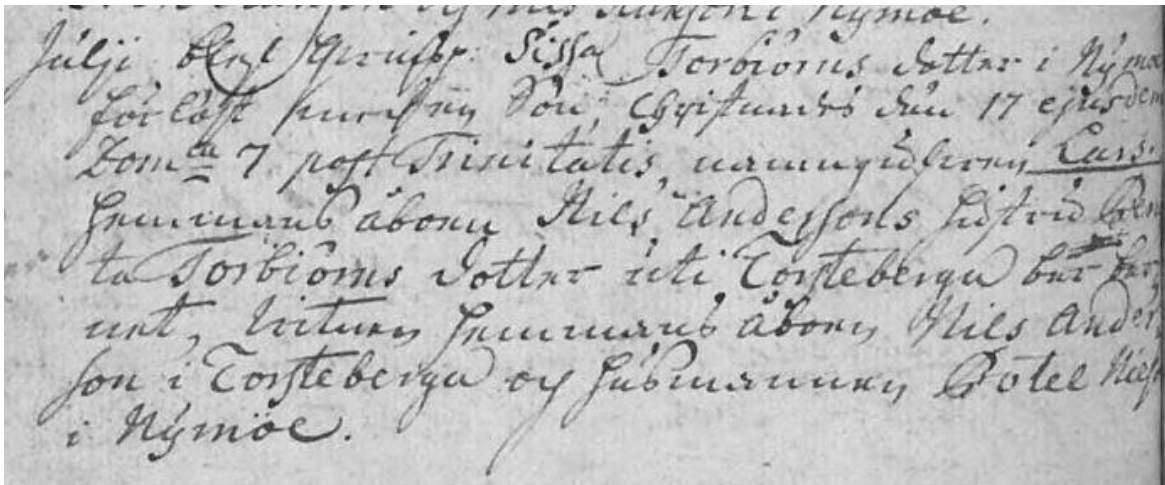 och Nils i Nymöe.
Julji blef Sissa Torbiörns dotter i Nymö
förlöst med en Son, Christnades den 17 ejusdem
Dom:ca 7 post Trinitatis, namngifven Lars.
Hemmans åboen Nils Anderssons hustru Ben
ta Torbiörns dotter uti Torsteberga bar bar
net, Vitnen Hemmans åboen Nils Anders
son i Torsteberga och husmannen Botel Niels
i Nymöe.